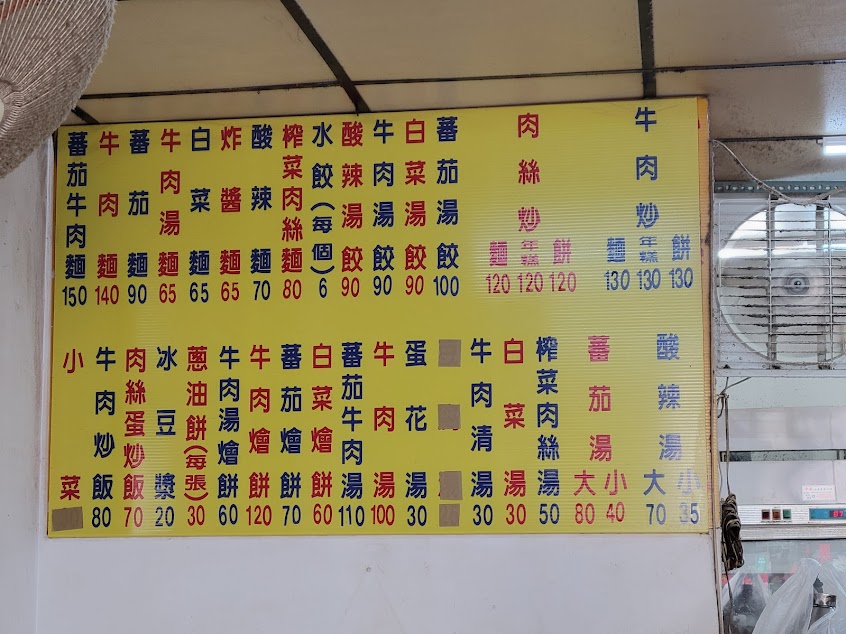 蕃茄牛肉麵 150
牛肉麵 140
蕃茄麵 90
牛肉湯麵 65
白菜麵 65
炸醬麵 65
酸辣麵 70
榨菜肉絲麵 80
水餃(每個) 6
酸辣湯餃 90
牛肉湯餃 90
白菜湯餃 90
蕃茄湯餃 100
肉絲炒
麵 120
年糕 120
餅 120
牛肉炒
麵 130
年糕 130
餅 130
小菜
牛肉炒飯 80
肉絲蛋炒飯 70
冰豆漿 20
蔥油餅(每張) 30
牛肉湯燴餅 60
牛肉燴餅 120
蕃茄燴餅 70
白菜燴餅 60
蕃茄牛肉湯 110
牛肉湯 100
蛋花湯 30
牛肉清湯 30
白菜湯 30
榨菜肉絲湯 50
蕃茄湯
大 80
小 40
酸辣湯
大 70
小 35